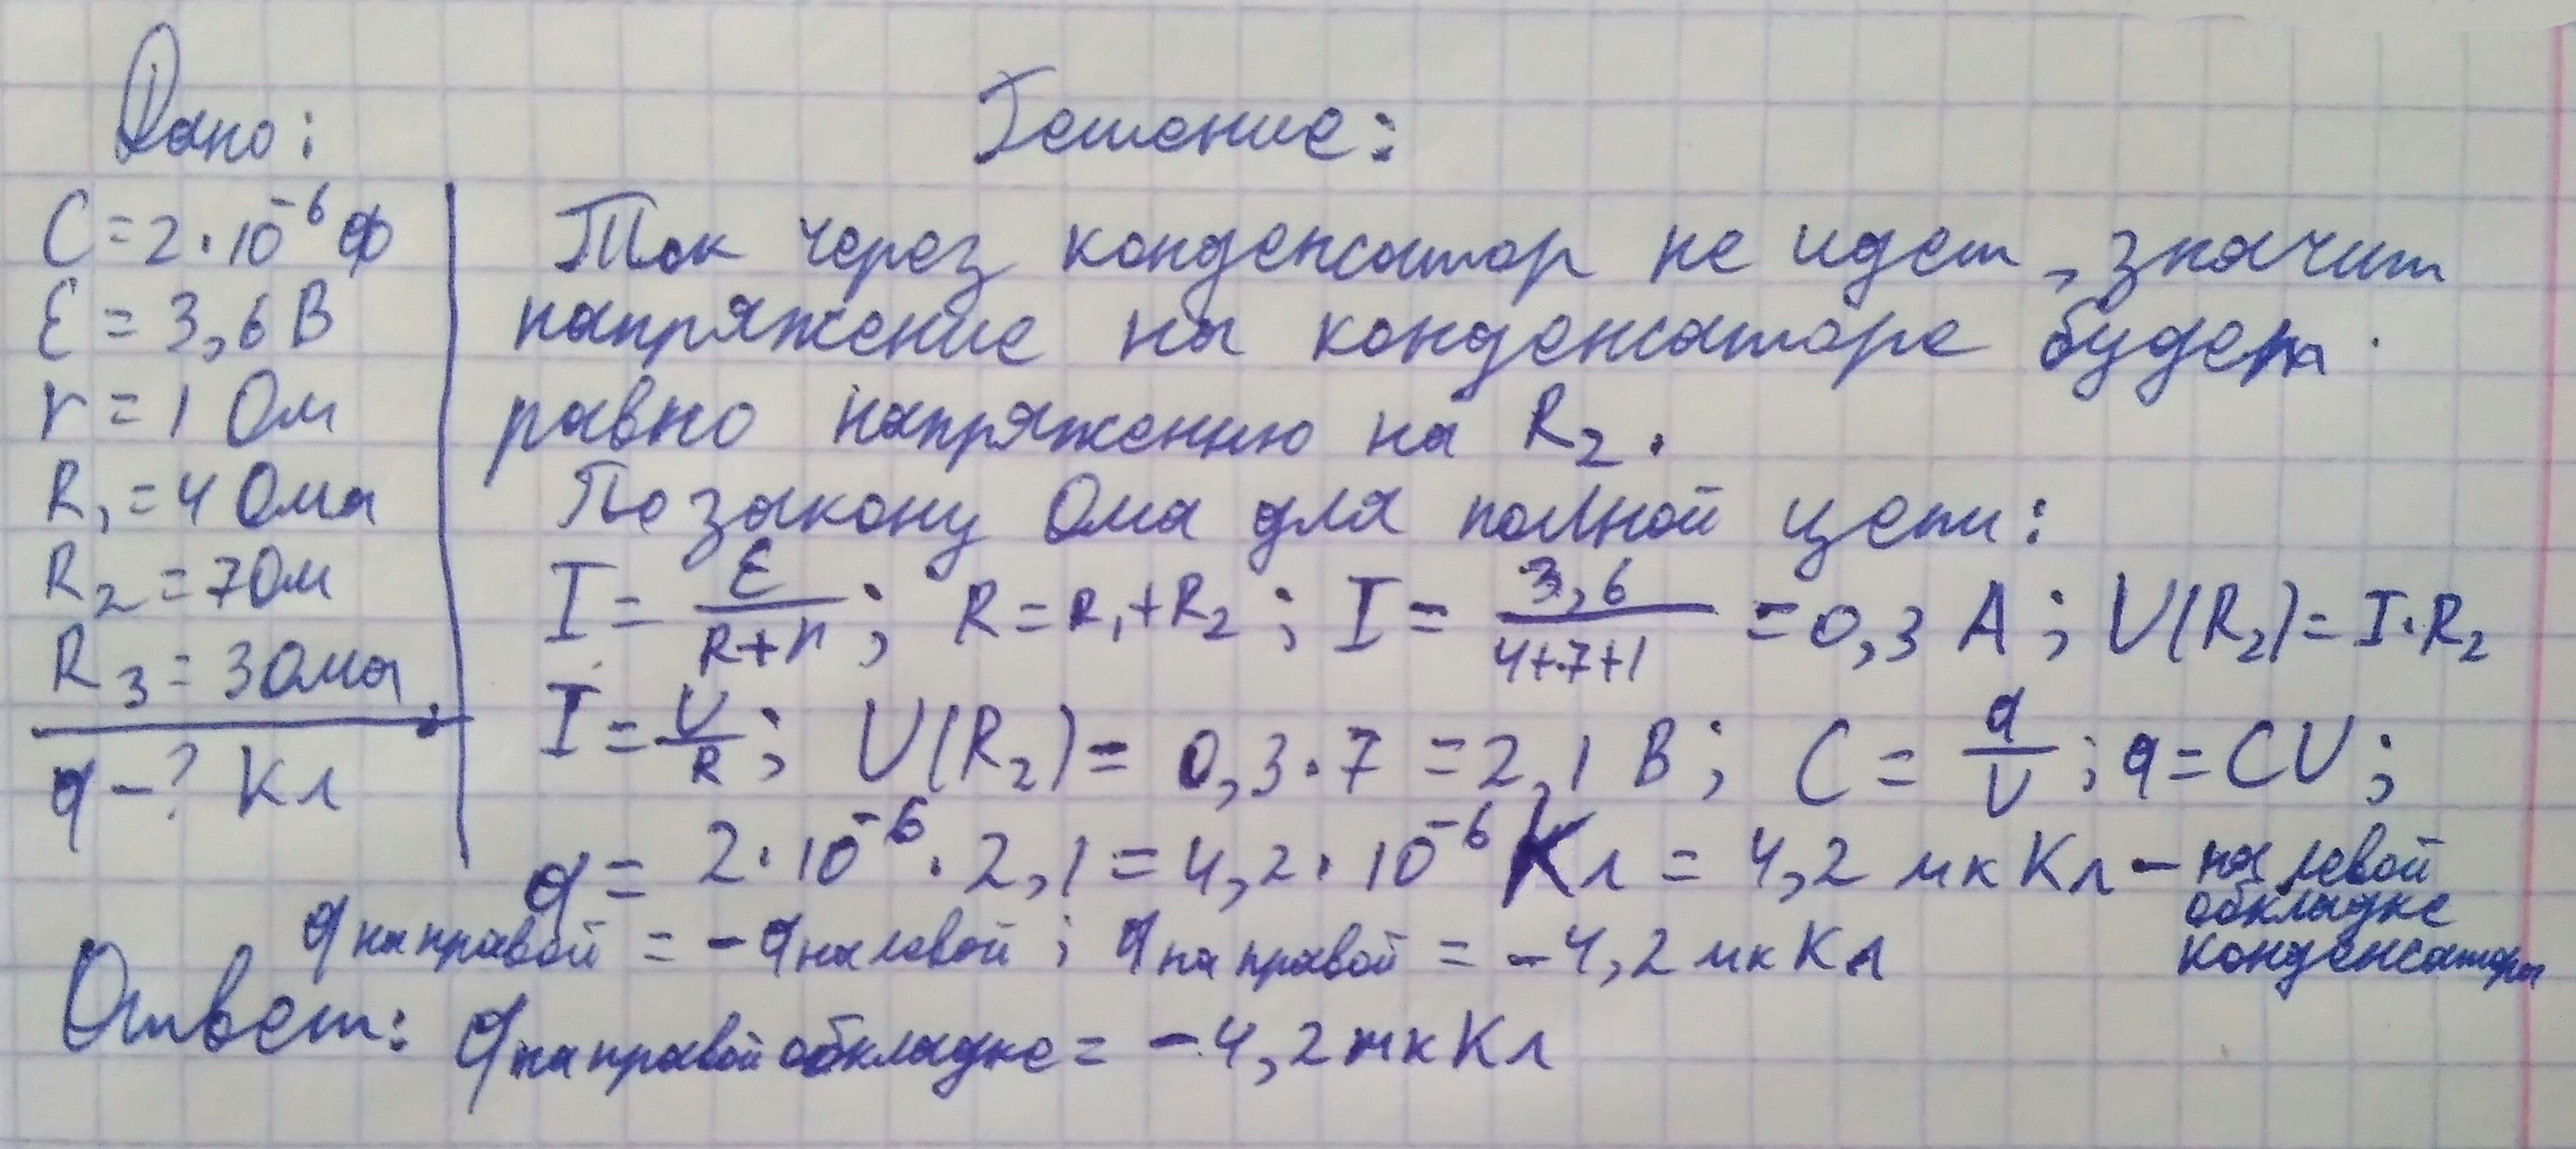 Дано:
Решение:
C = 2·10⁻⁶ Ф
Ɛ = 3,6 В
r = 1 Ом
R₁ = 4 Ома
R₂ = 7 Ом
R₃ = 3 Ома
q - ? Кл
Ток через конденсатор не идет, значит
напряжение на конденсаторе будет
равно напряжению на R₂.
По закону Ома для полной цепи:
I = Ɛ/(R+r); R = R₁+R₂; I = 3,6/(4+7+1) = 0,3 А; U(R₂) = I·R₂
I = U/R; U(R₂) = 0,3·7 = 2,1 В; C = q/U; q = CU;
q = 2·10⁻⁶·2,1 = 4,2·10⁻⁶ Кл = 4,2 мкКл – на левой
обкладке
конденсатора
q на правой = -q на левой; q на правой = -4,2 мкКл
Ответ: q на правой обкладке = -4,2 мкКл